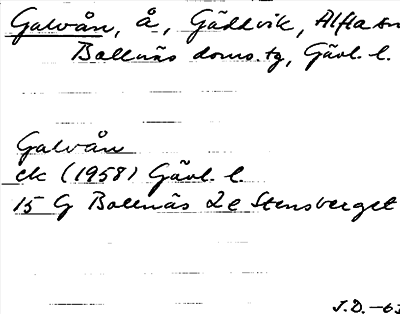 Galvån, Å, Gäddvik, Alfta sn
Bollnäs doms.tg, Gävl. l.
Galvån
ek (1958) Gävl. l.
15 G Bollnäs 2 e Stensberget
J.D.-63